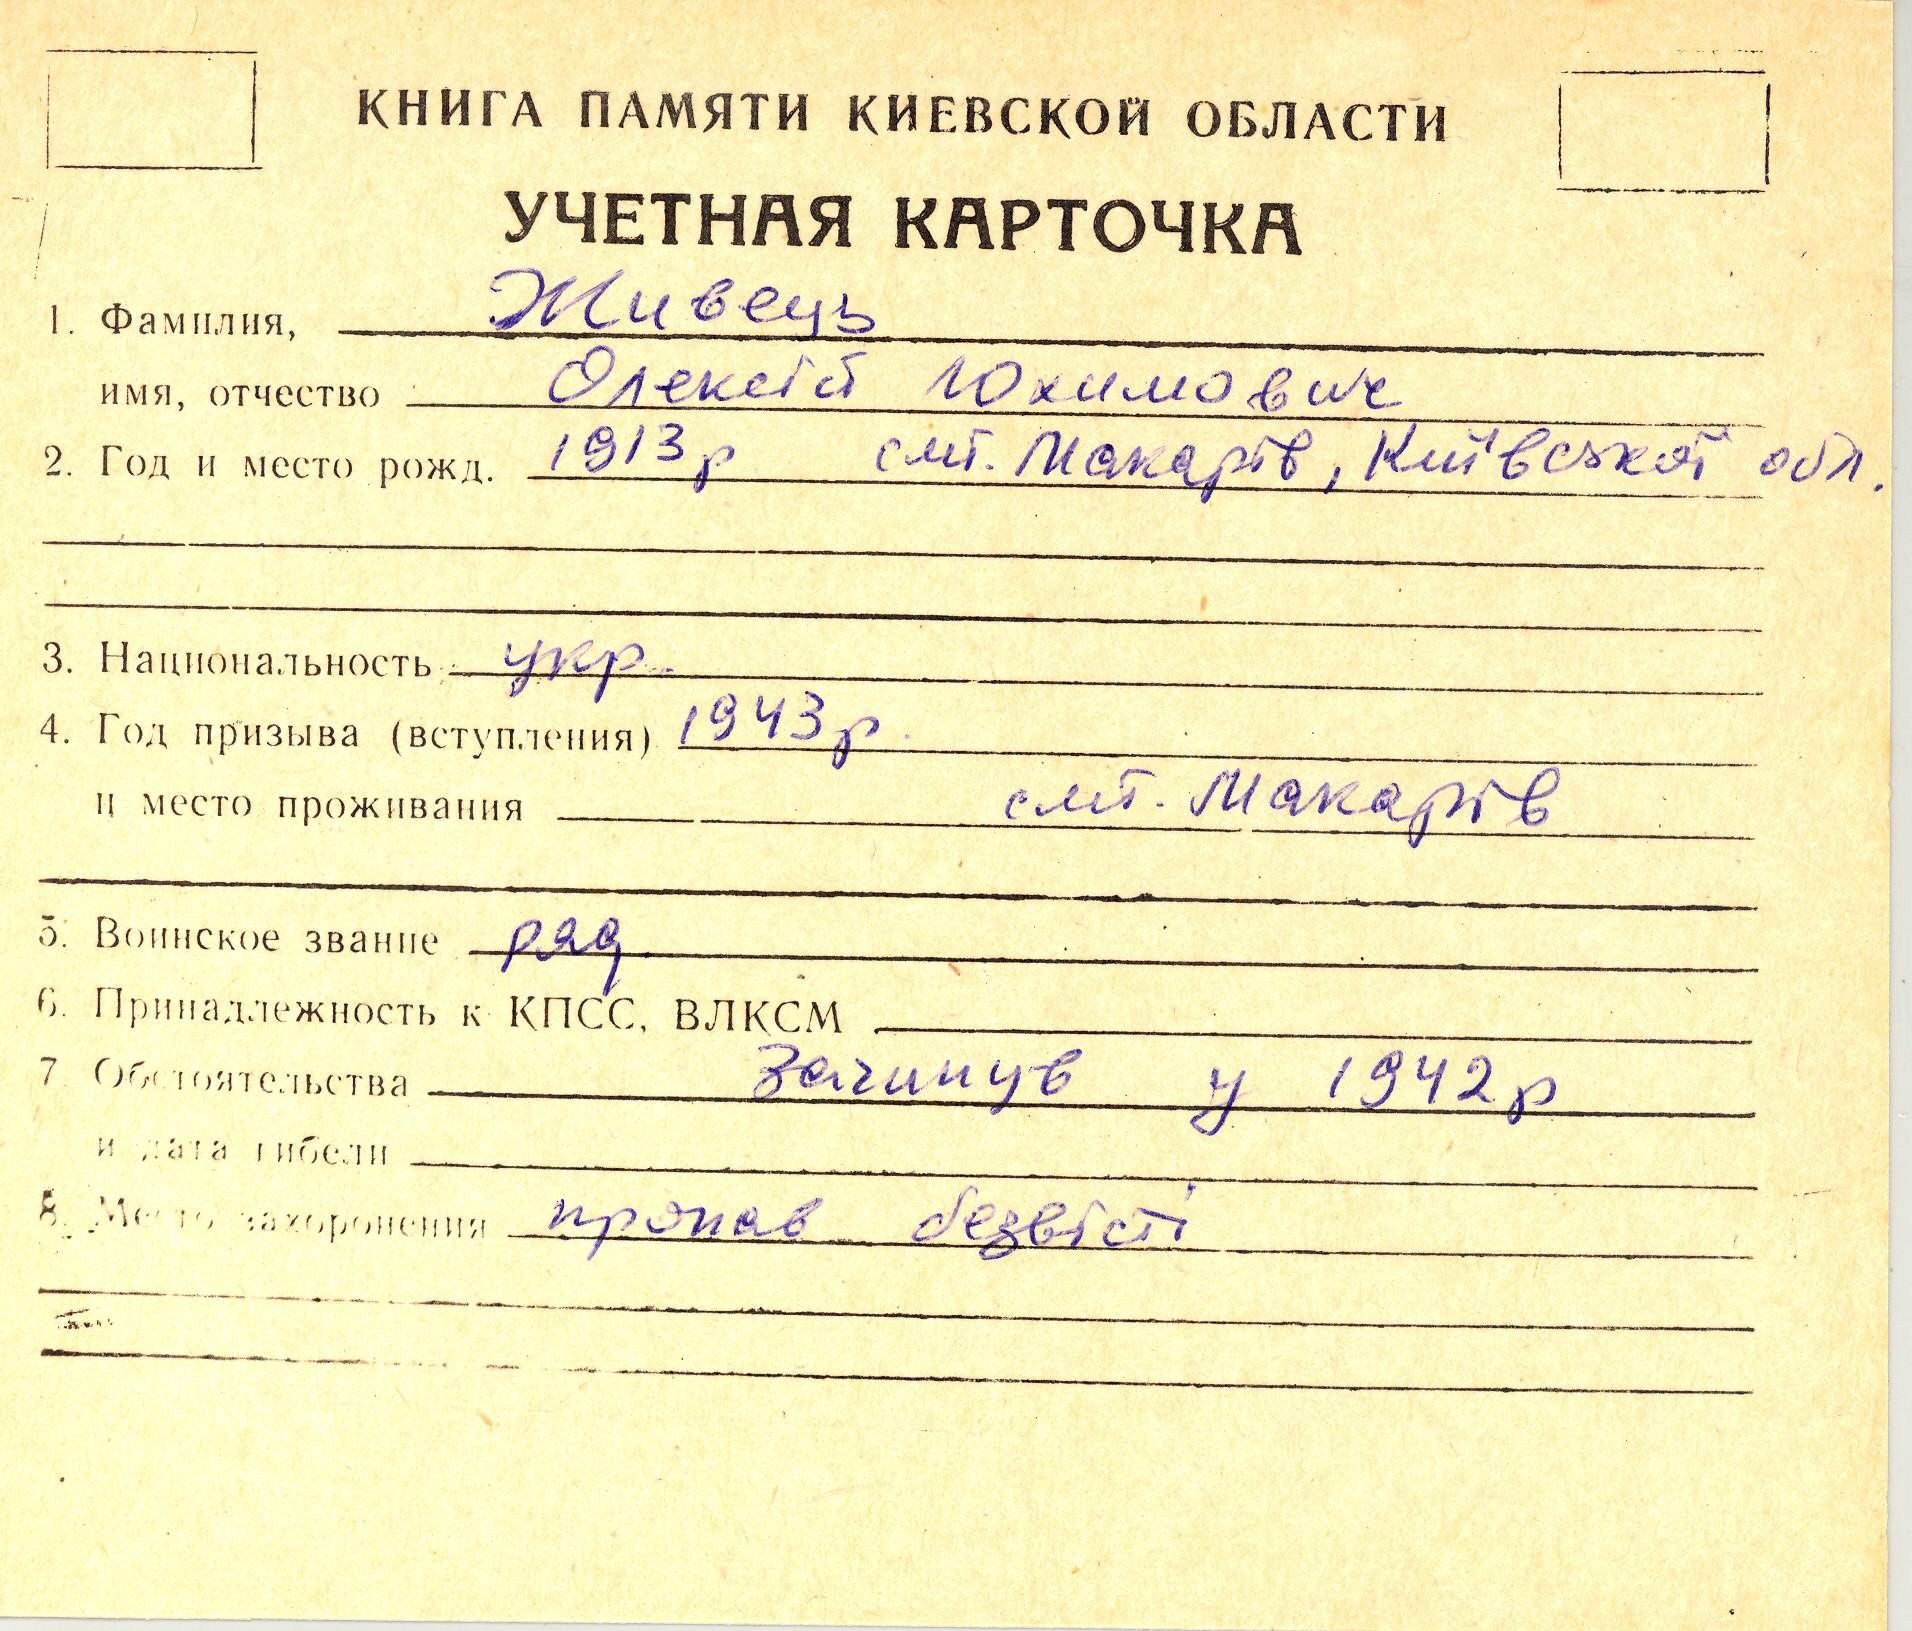 КНИГА ПАМЯТИ КИЕВСКОЙ ОБЛАСТИ
УЧЕТНАЯ КАРТОЧКА
1. Фамилия, Живець
имя, отчество Олексій Юхимович
2. Год и место рожд. 1913р смт. Макарів, Київської обл.
3. Национальность укр.
4. Год призыва (вступления) 1943р.
и место проживания смт. Макарів
5. Воинское звание ряд.
6. Принадлежность к КПСС, ВЛКСМ
7 Обстоятельства Загинув у 1942р
и дата гибели
8. Место захоронения пропав безвісті